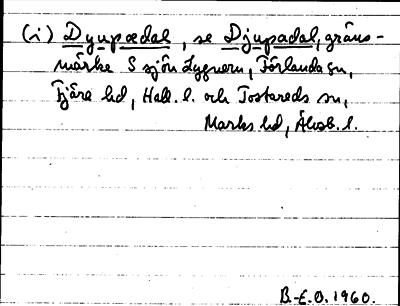 (i) Dyupædal, se Djupadal, gräns-
märke S sjön Lygnern, Förlanda sn,
Fjäre hd, Hall. l. och Tostareds sn,
Marks hd, Älvsb. l.
B.-E.O. 1960.